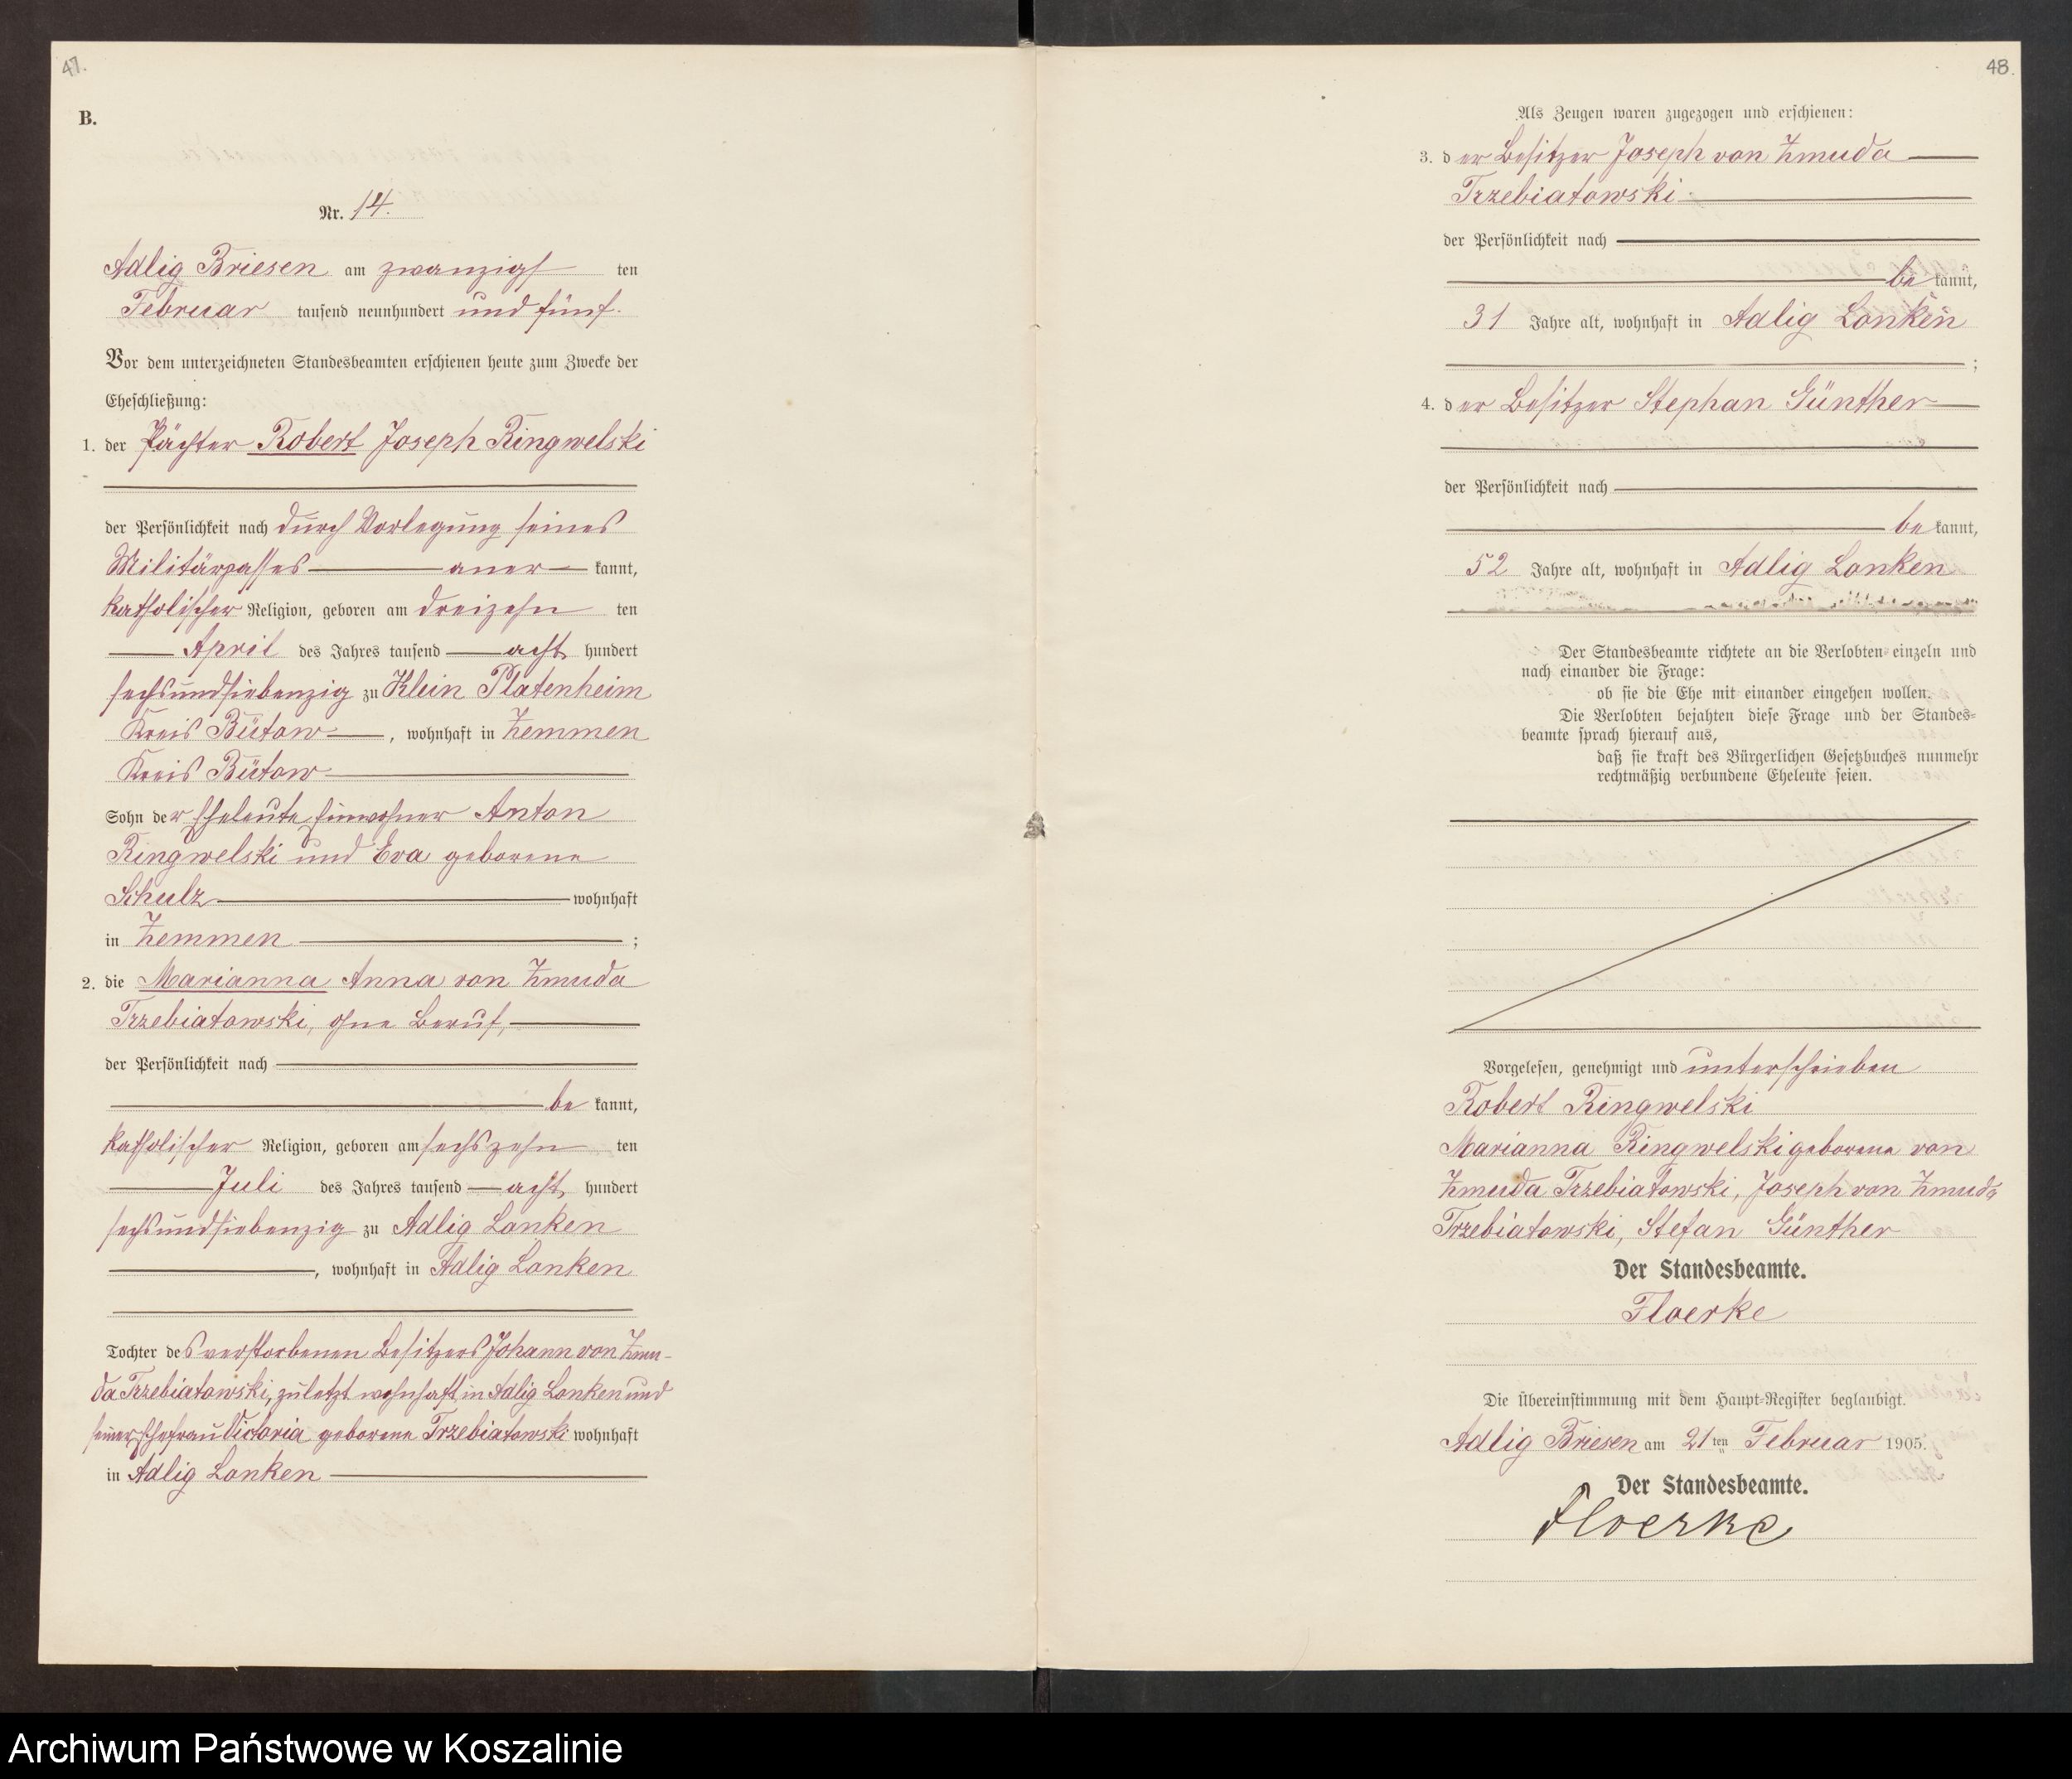 47.
B.
Nr. 14.
Adlig Briesen am zwanzigs ten
Februar tausend neunhundert und fünf.
Vor dem unterzeichneten Standesbeamten erschienen heute zum Zwecke der
Eheschließung:
1. der Pächter Robert Joseph Ringwelski
der Persönlichkeit nach durch Vorlegung seines
Militärpasses aner kannt,
katholischer Religion, geboren am dreizehn ten
April des Jahres tausend acht hundert
sechsundsiebenzig zu Klein Platenheim
Kreis Bütow, wohnhaft in Zemmen
Kreis Bütow
Sohn der Eheleute Einwohner Anton
Ringwelski und Eva geborene
Schulz wohnhaft
in Zemmen ;
2. die Marianna Anna von Zmuda
Trzebiatowski, ohne Beruf,
der Persönlichkeit nach
be kannt,
katholischer Religion, geboren am sechszehn ten
Juli des Jahres tausend acht hundert
sechsundsiebenzig zu Adlig Lonken
, wohnhaft in Adlig Lonken
Tochter des verstorbenen Besitzers Johann von Zmu-
da Trzebiatowski, zuletzt wohnhaft in Adlig Lonken und
seiner Ehefrau Victoria geborene Trzebiatowski wohnhaft
in Adlig Lonken
48.
Als Zeugen waren zugezogen und erschienen:
3. der Besitzer Joseph von Zmuda
Trzebiatowski
der Persönlichkeit nach
be kannt,
31 Jahre alt, wohnhaft in Adlig Lonken
;
4. der Besitzer Stephan Günther
der Persönlichkeit nach
be kannt,
52 Jahre alt, wohnhaft in Adlig Lonken
Der Standesbeamte richtete an die Verlobten einzeln und
nach einander die Frage:
ob sie die Ehe mit einander eingehen wollen.
Die Verlobten bejahten diese Frage und der Standes-
beamte sprach hierauf aus,
daß sie kraft des Bürgerlichen Gesetzbuches nunmehr
rechtmäßig verbundene Eheleute seien.
Vorgelesen, genehmigt und unterschrieben
Robert Ringwelski
Marianna Ringwelski geborene von
Zmuda Trzebiatowski, Joseph von Zmuda
Trzebiatowski, Stefan Günther
Der Standesbeamte.
Floerke
Die Übereinstimmung mit dem Haupt-Register beglaubigt.
Adlig Briesen am 21ten Februar 1905.
Der Standesbeamte.
Floerke
Archiwum Państwowe w Koszalinie